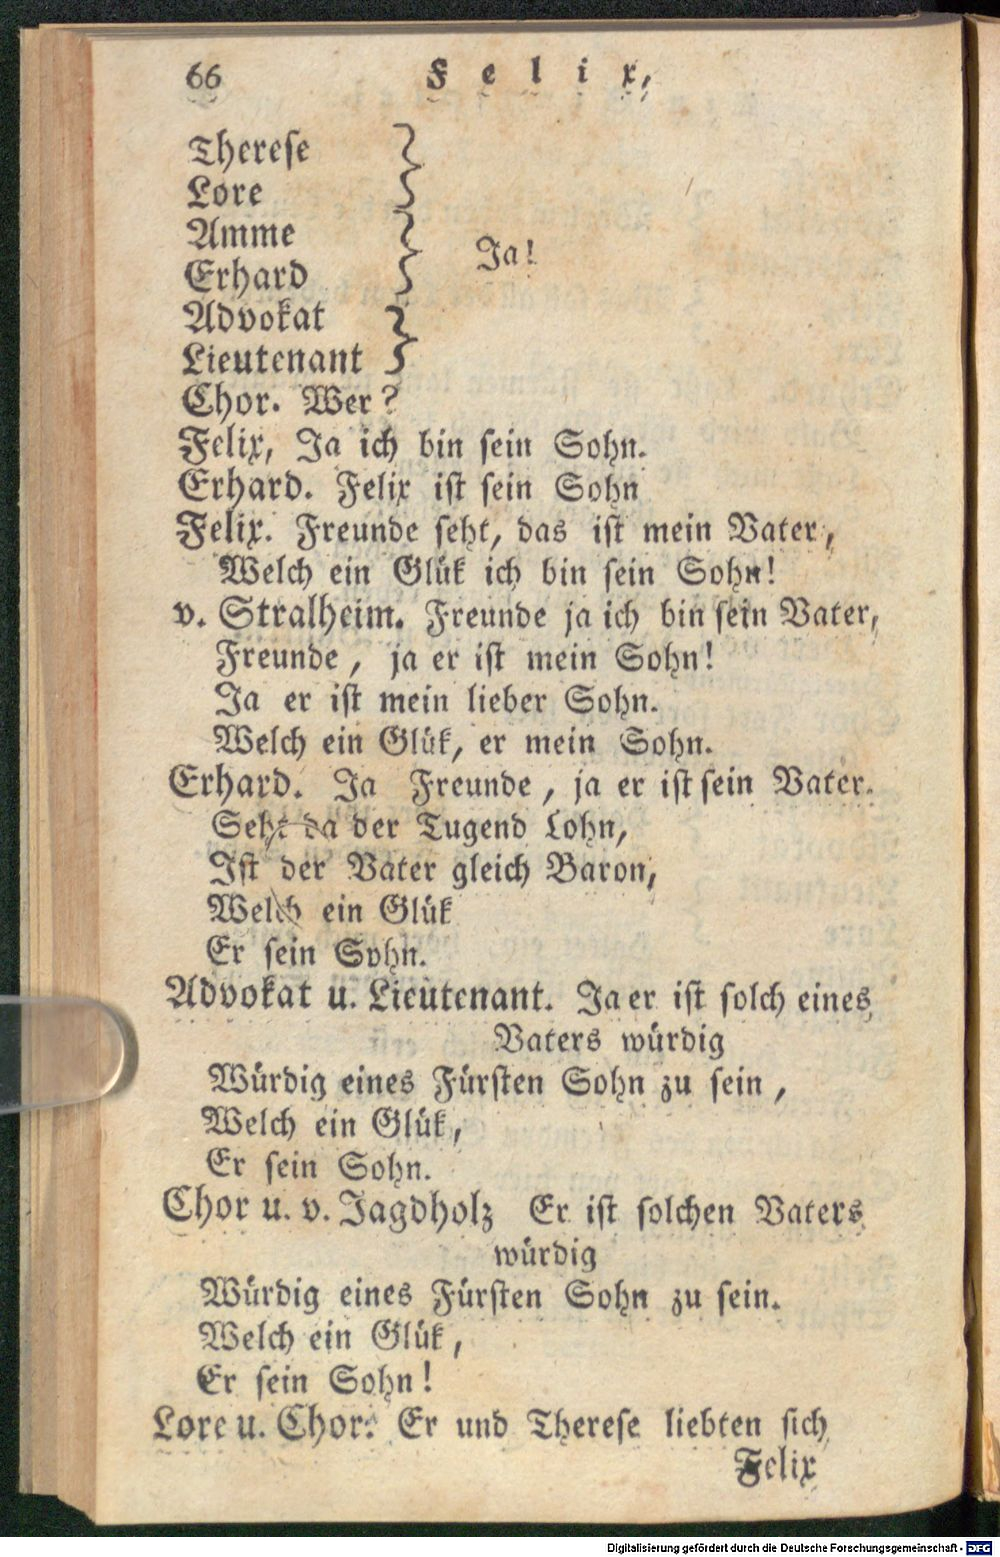 66 Felix,
Therese
Lore
Amme
Erhard
Advokat
Lieutenant
Ja!
Chor. Wer?
Felix, Ja ich bin sein Sohn.
Erhard. Felix ist sein Sohn
Felix. Freunde seht, das ist mein Vater,
Welch ein Glük ich bin sein Sohn!
v. Stralheim. Freunde ja ich bin sein Vater,
Freunde, ja er ist mein Sohn!
Ja er ist mein lieber Sohn.
Welch ein Glük, er mein Sohn.
Erhard. Ja Freunde, ja er ist sein Vater.
Seht da der Tugend Lohn,
Ist der Vater gleich Baron,
Welch ein Glük
Er sein Sohn.
Advokat u. Lieutenant. Ja er ist solch eines
Vaters würdig
Würdig eines Fürsten Sohn zu sein,
Welch ein Glük,
Er sein Sohn.
Chor u. v. Jagdholz Er ist solchen Vaters
würdig
Würdig eines Fürsten Sohn zu sein.
Welch ein Glük,
Er sein Sohn!
Lore u. Chor. Er und Therese liebten sich
Felix
Digitalisierung gefördert durch die Deutsche Forschungsgemeinschaft - DFG